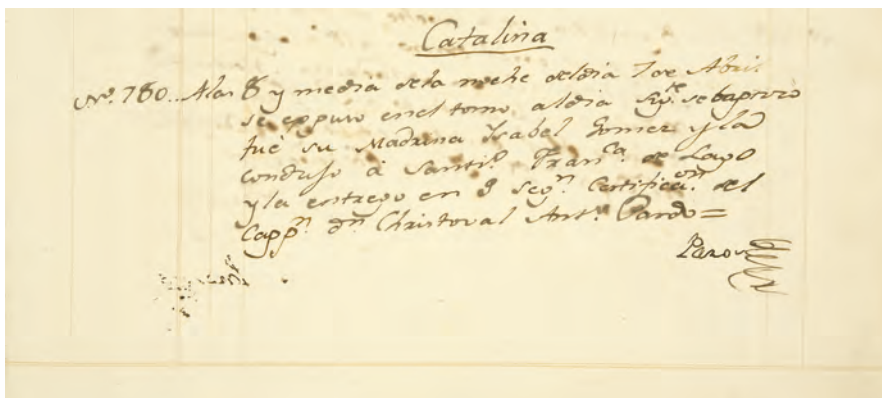 Catalina
Nº. 780. Alas 8 y media dela noche deldia 7 de Abril
se eppuso enel torno, aldia sigᵗᵉ. se baptizò
fuè su Madrina Isabel Gomez y la
condujo à Santiº. Franᶜᵃ. de Lago
y la entregò en 9 segⁿ. Certificaᵒⁿ. del
Cappⁿ. Dⁿ. Christoval Antº. Pardo=